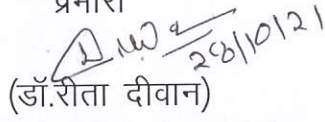 प्रभारी
28/10/21
(डॉ.रीता दीवान)